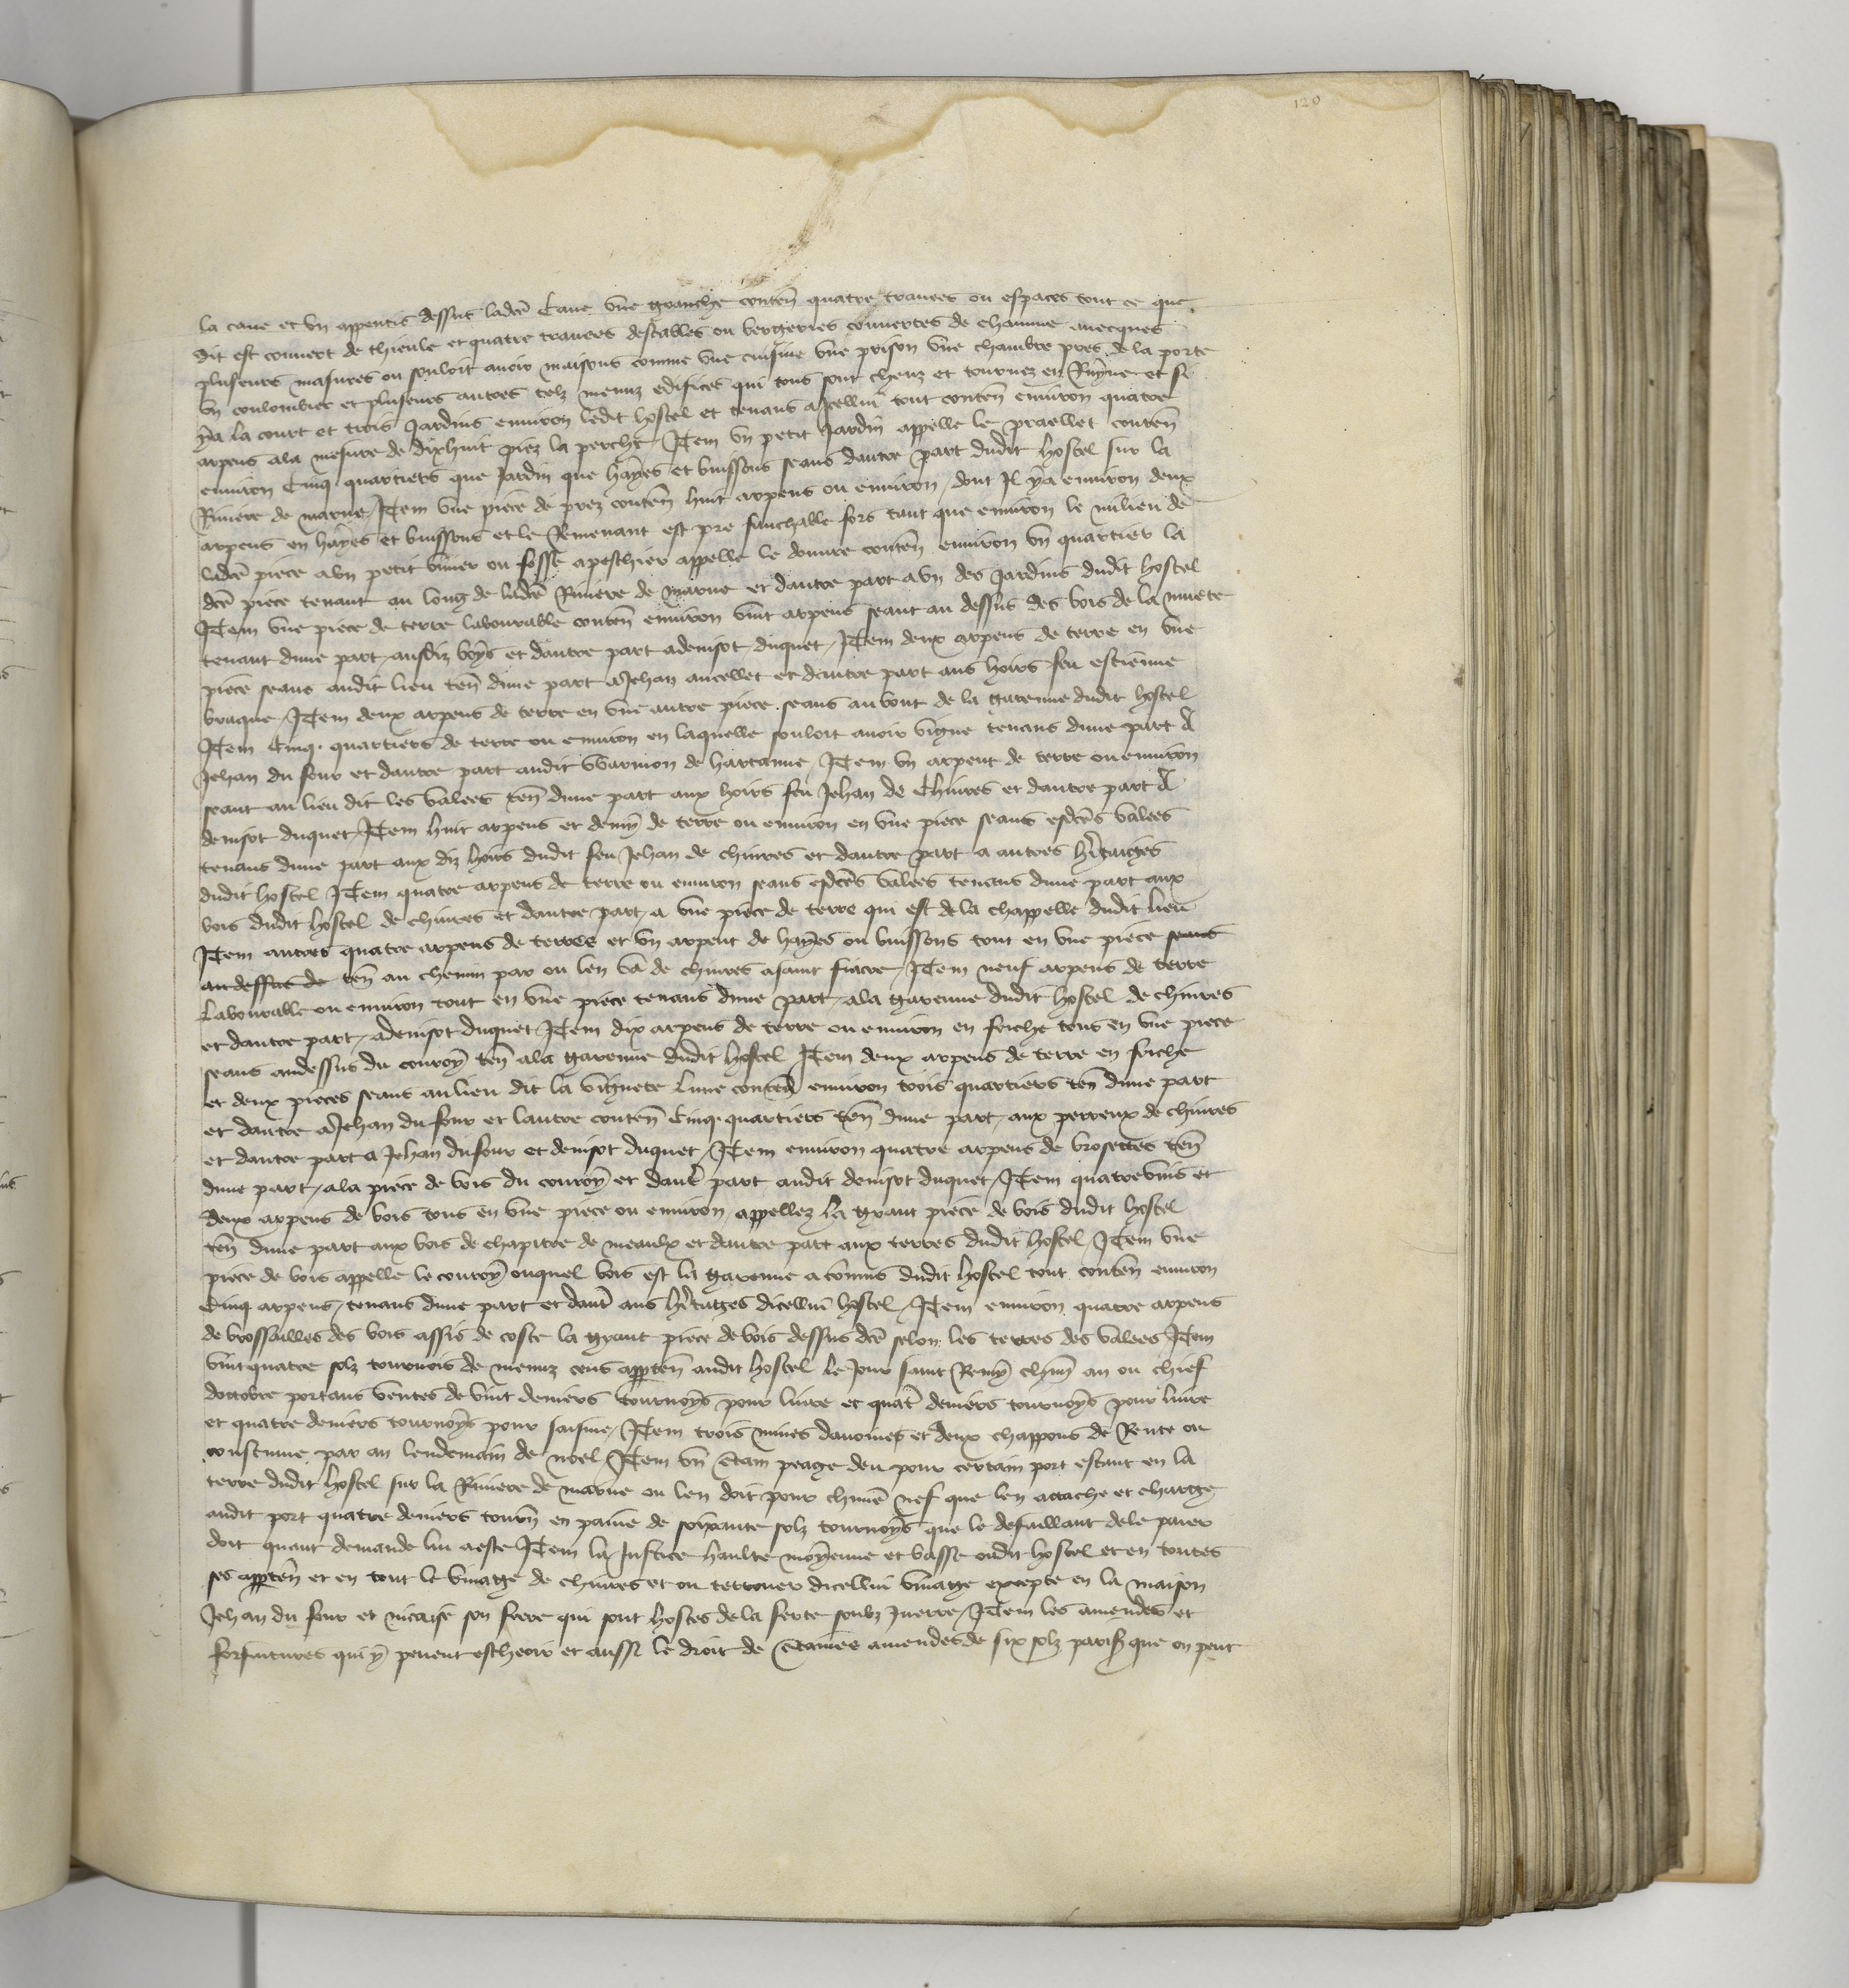 120
la cave et vn appentis dessus ladce Cave vne granche conten quatre travees ou espaces tout ce que
dit est couvert de thieule et quatre travees destables ou bergeries couvertes de chaume avecques
pluseurs masures ou souloit avoir maisons comme vne cuisine vne prison vne chambre pres de la porte
vn coulombier et pluseurs autres telz menuz edifices qui tous sont cheuz et tournez en Ruyne et si
ya la court et trois Jardins environ ledit hostel et tenans a Jcellui tout conten environ quatre
arpens ala mesure de dixhuit piez la perche / Jtem vn petit Jardin appelle le praellet conten
environ Cinq quartiers que Jardin que hayes et buissons seans dautre part dudit hostel sur la
Riviere de marne / Jtem vne piece de prez conten huit arpens ou environ / dont Jl ya environ deux
arpens en hayes et buissons et le Remenant est pre fauchable fors tant que environ le milieu de
ladce piece a vn petit vivier ou fosse apeschier appelle le douvre conten environ vn quartier la
dce piece tenant au long de ladce Riviere de Marne et dautre part a vn des Jardins dudit hostel
Jtem vne piece de terre labourable conten environ vint arpens seant au dessus des bois de la muete
tenant dune part / ausdiz boys et dautre part adenisot duquet / Jtem deux arpens de terre en vne
piece seans audit lieu ten dune part a Jehan ancellet et dautre part aus hoirs feu estienne
braque / Jtem deux arpens de terre en vne autre piece seans au bout de la garenne dudit hostel
Jtem Cinq quartiers de terre ou environ en laquelle souloit avoir vigne tenans dune part A
Jehan du four et dautre part audit Warnion de hartanne / Jtem vn arpent de terre ou environ
seant au lieu dit les valees ten dune part aux hoirs feu Jehan de Chivres et dautre part A
denisot duquet / Jtem huit arpens et demy de terre ou environ en vne piece seans esdces valees
tenans dune part aux diz hoirs dudit feu Jehan de chivres et dautre part a autres heritaiges
dudit hostel Jtem quatre arpens de terre ou environ seans esdces valees tenans dune part aux
bois dudit hostel de chivres et dautre part / a vne piece de terre qui est de la chappelle dudit lieu
Jtem autres quatre arpens de terres et vn arpent de hayes ou buissons tout en vne piece seans
audessus de ten au chemin par ou len va de chivres asaint fiacre / Jtem neuf arpens de terre
labourable ou environ tout en vne piece tenans dune part / ala garenne dudit hostel de chivres
et dautre part / adenisot duquet Jtem dix arpens de terre ou environ en friche tous en vne piece
seans audessus du couroy ten ala garenne dudit hostel Jtem deux arpens de terre en friche
et deux pieces seans au lieu dit la vignete lune conten environ trois quartiers ten dune part
et dautre a Jehan du four et lautre conten Cinq quartiers ten dune part / aux perreux de chivres
et dautre part a Jehan dufour et denisot duquet / Jtem environ quatre arpens de brosettes ten
dune part / ala piece de bois du couroy et daut part audit denisot duquet / Jtem quatrevins et
deux arpens de bois tous en vne piece ou environ appellez la grant piece de bois dudit hostel
ten dune part aux bois de chapitre de meaulx et dautre part aux terres dudit hostel / Jtem vne
piece de bois appelle le couroy ouquel bois est la garenne a connis dudit hostel tout conten environ
Cinq arpens / tenans dune part et daut aus heritages dicellui hostel / Jtem environ quatre arpens
de brossailles des bois assis de coste la grant piece de bois dessus dce selon les terres des valees Jtem
vint quatre solz tournois de menuz cens apparten audit hostel le Jour saint Remy chun an ou chief
doctobre portans ventes de vint deniers tournoys pour livre et quat deniers tournoys pour livre
et quatre deniers tournoys pour saisine / Jtem trois mines davoines et deux chappons de Rente ou
coustume par an lendemain de noel / Jtem vn Ctain peage deu pour certain port estant en la
terre dudit hostel sur la Riviere de marne ou len doit pour chune nef que len atache et charge
audit port quatre deniers tourn en paine de soixante solz tournoys que le defaillant dele paier
doit quant demande lui aeste Jtem la Justice haulte moyenne et basse oudit hostel et en toutes
ses apparten et en tout le vinage de chivres et ou terrouer dicellui vinage excepte en la maison
Jehan du four et nicaise son frere qui sont hostes de la ferte soubz Juerre / Jtem les amendes et
forfaitures qui y pevent escheoir et aussi le droit de Ctaines amendes de six solz paris que on peut